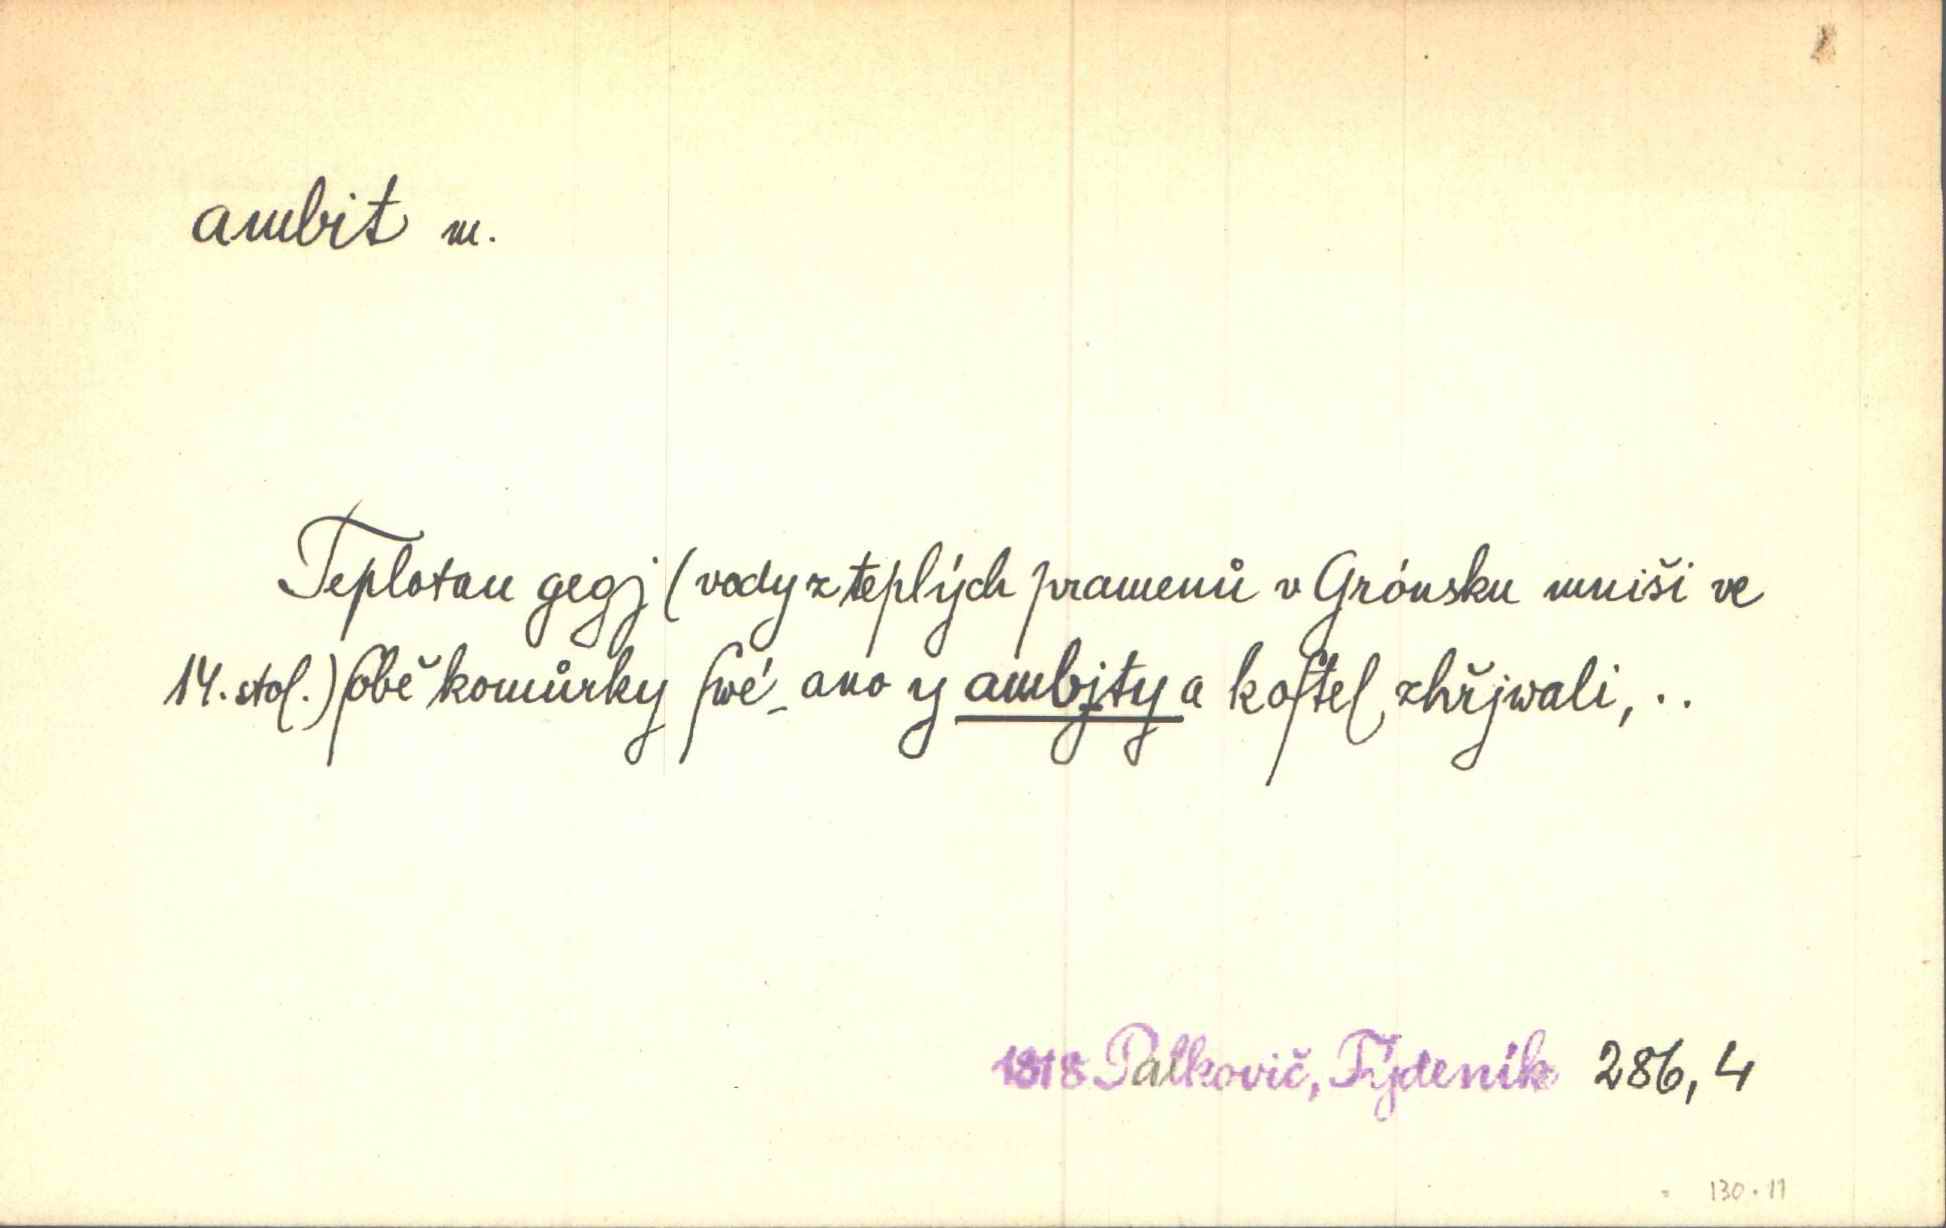 ambit m.
Teplotau gegj (vody z teplých pramenů v Grónsku mniši ve
14. stol.) ſobě komůrky ſwé, ano y ambjty a koſtel zhřjwali, ..
1818 Palkovič, Týdeník 286, 4
130.11